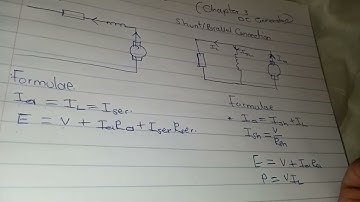 (Chapter 3
DC Generator)
Shunt/Parallel Connection
Formulae
Ia = IL = Iser.
E = V + IaRa + IserRser.
Formulae
* Ia = Ish + IL
Ish = V/Rsh
E = V + IaRa
P = VIL